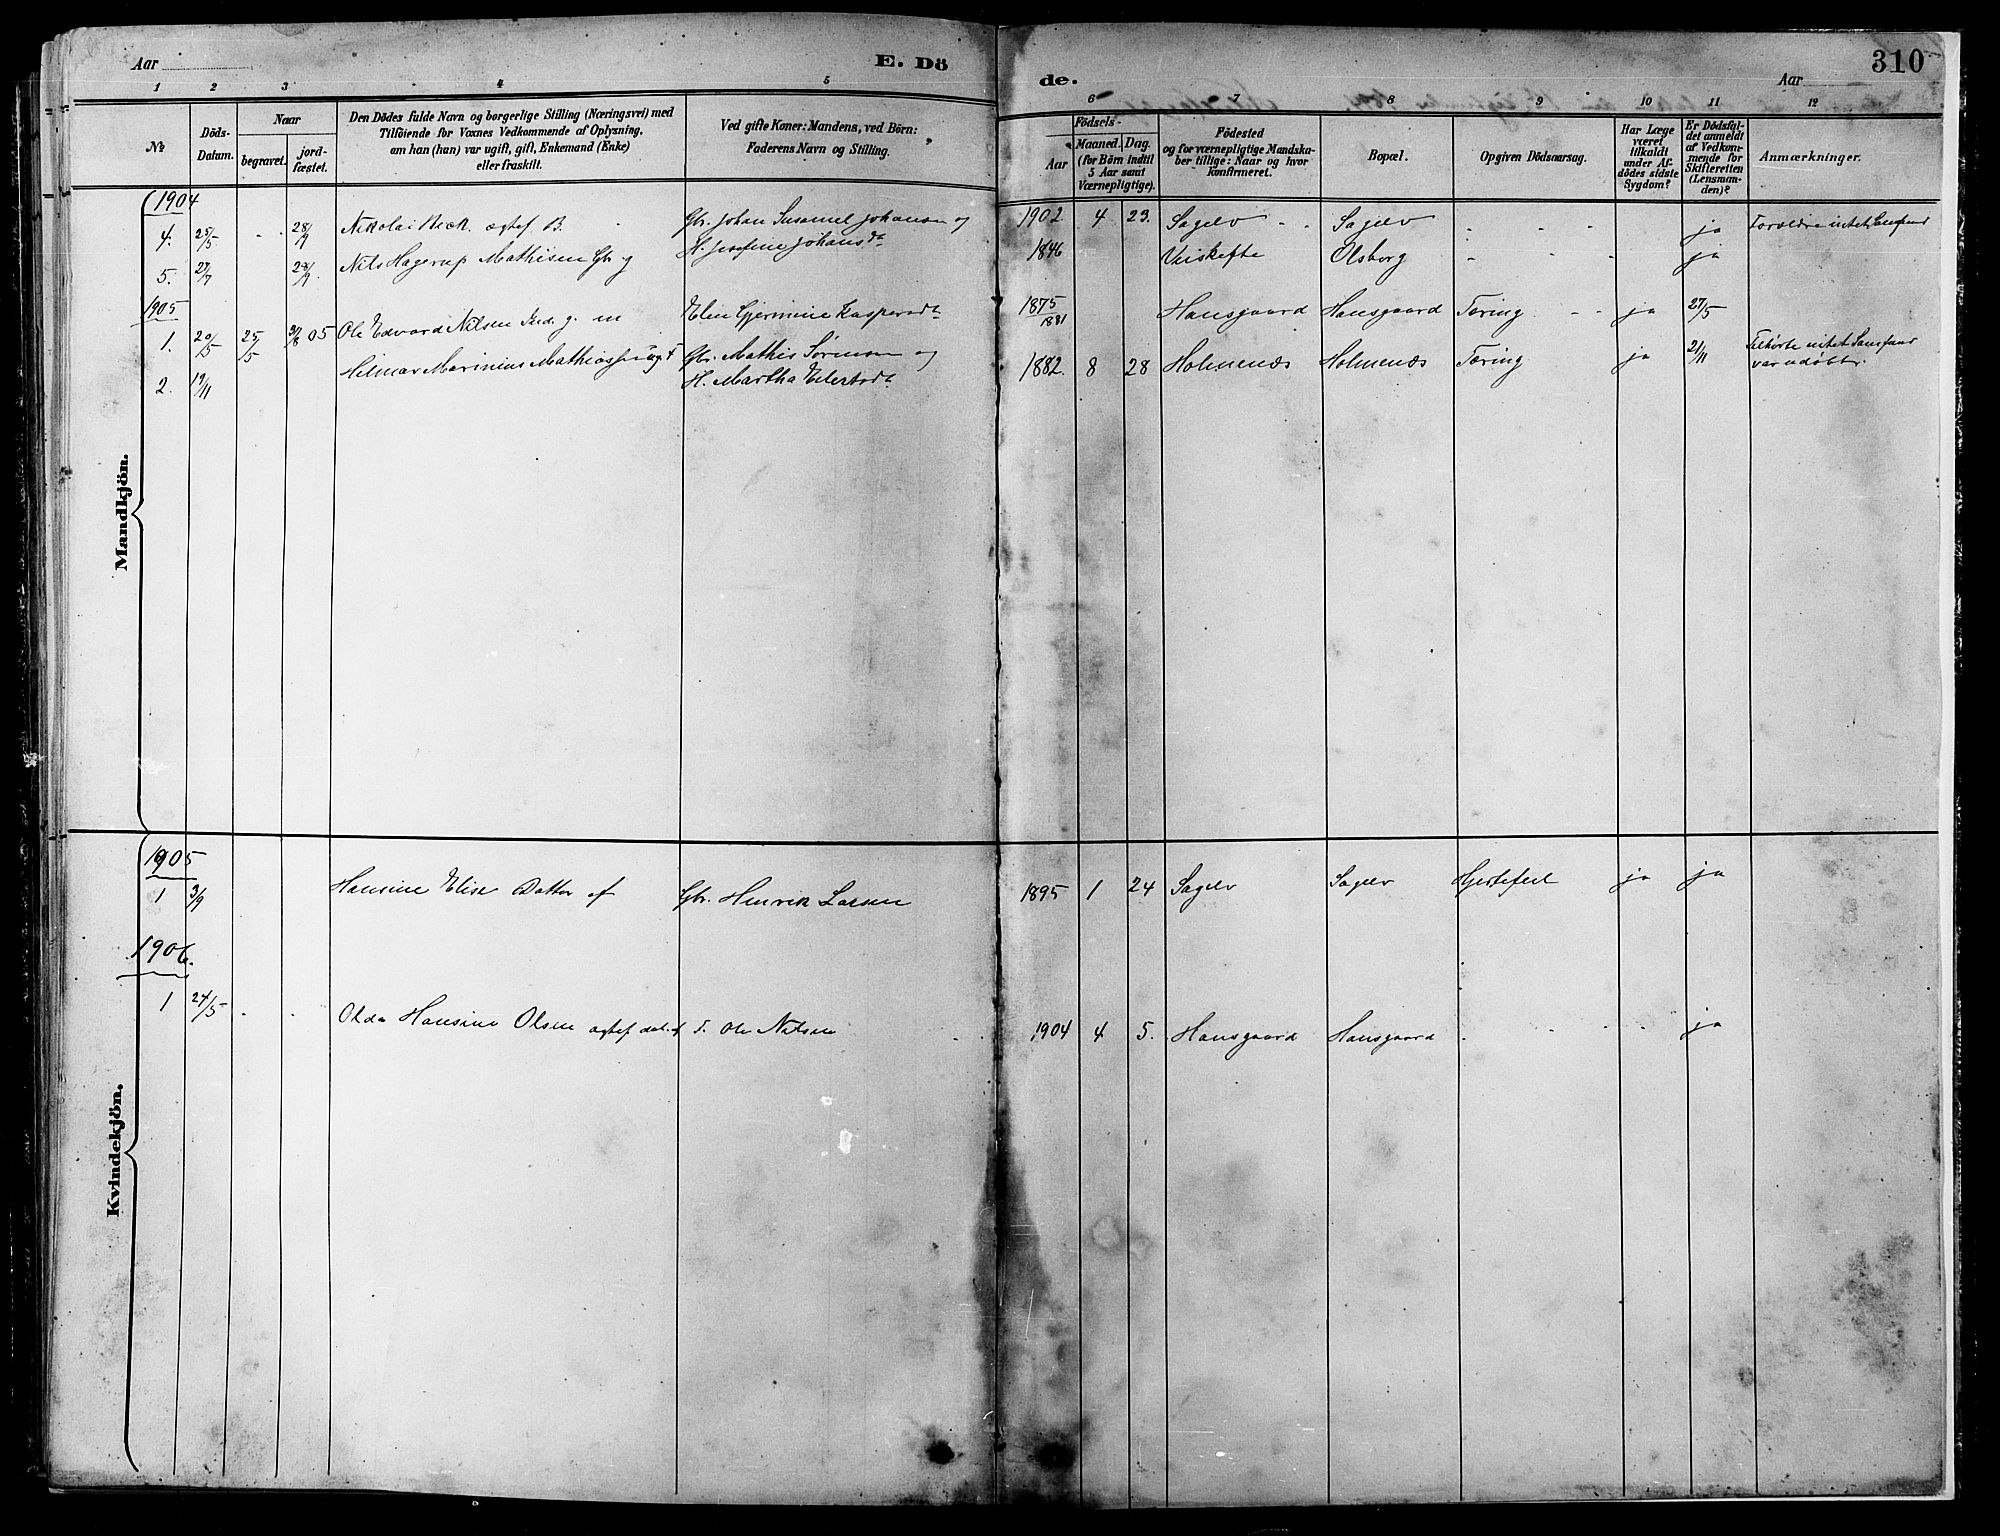 Aar
E. Dö
de.
Aar
310
1 2 3 4 5 6 7 8 9 10 11 12
№
Döds-
Datum.
Naar
begravet.
jord-
fæstet.
Den Dödes fulde Navn og borgerlige Stilling (Næringsvei) med
Tilföiende for Voxnes Vedkommende af Oplysning,
om han (hun) var ugift, gift, Enkemand (Enke)
eller fraskilt.
Ved gifte Koner: Mandens, ved Börn:
Faderens Navn og Stilling.
Födsels-
Aar
Maaned.
Dag.
(for Börn indtil
5 Aar samt
Værnepligtige).
Födested
og for værnepligtige Mandska-
ber tillige: Naar og hvor
konfirmeret.
Bopæl.
Opgiven Dödsaarsag.
Har Læge
været
tilkaldt
under Af-
dödes sidste
Sygdom?
Er Dödsfal-
det anmeldt
af Vedkom-
mende for
Skifteretten
(Lensman-
den)?
Anmærkninger.
Mandkjön.
1904
4. 25/5 28/9 Nikolai Beck. ægtef. B. Gbr. Johan Susamel Johansen og 1902 4 23. Sagelv Sagelv ja Forældre intet Samfund
H. Josefine Johansdt
5. 27/7 28/9 Nils Hagerup Mathisen Gbr g 1846 Olsborg ja
1905
1. 20/5 25/5 3/8 05 Ole Edvard Nilsen g. m Elen Gjermine Kaspersdt 1875 Hansgaard Hansgaard Tæring ja 27/5
1881
2. 19/11 Hilmar Marinius Mathiassen ugt Gbr. Mathis Sørensen og 1882. 8 28 Holmenæs Holmenæs Tæring ja 21/11 Tilhørte intet Samfund
H. Martha Eilertsdt var udøbt.
Kvindekjön.
1905
1 3/9 Hansine Elise Datter af Gbr. Henrik Larsen 1895 1 24 Sagelv Sagelv Hjertefeil ja ja
1906.
1 24/5 Olda Hansine Olsen ægtef dat. af Ole Nilsen 1904 4 5. Hansgaard Hansgaard ja